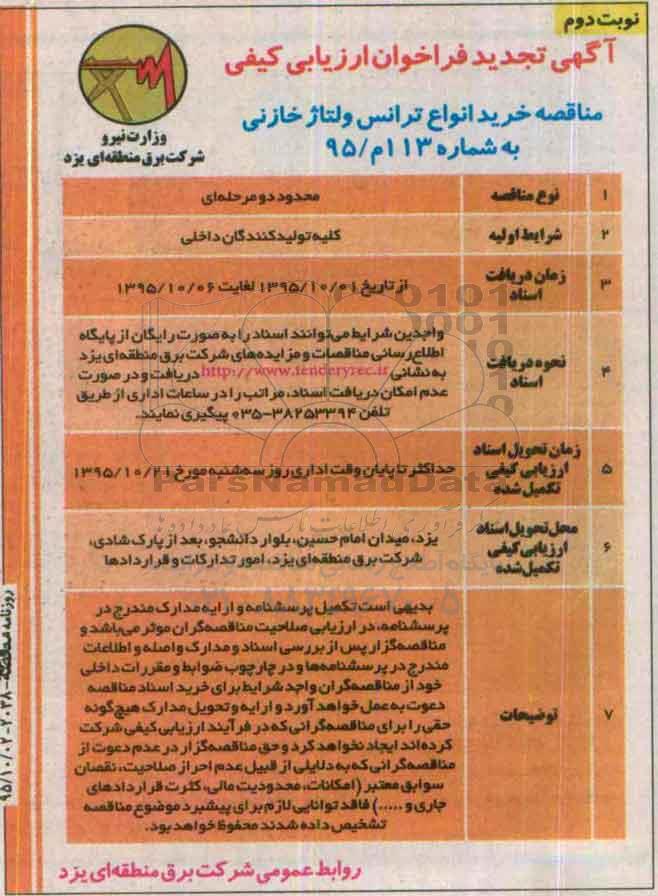 نوبت دوم
آگهی تجدید فراخوان ارزیابی کیفی
مناقصه خرید انواع ترانس ولتاژ خازنی
به شماره ۱۱۳م/۹۵
وزارت نیرو
شرکت برق منطقه‌ای یزد
۱ نوع مناقصه محدود دو مرحله‌ای
۲ شرایط اولیه کلیه تولیدکنندگان داخلی
۳ زمان دریافت اسناد از تاریخ ۱۳۹۵/۱۰/۰۱ لغایت ۱۳۹۵/۱۰/۰۶
۴ نحوه دریافت اسناد
واجدین شرایط می‌توانند اسناد را به صورت رایگان از پایگاه
اطلاع‌رسانی مناقصات و مزایده‌های شرکت برق منطقه‌ای یزد
به نشانی http://www.tenceryrec.ir دریافت و در صورت
عدم امکان دریافت اسناد، مراتب را در ساعات اداری از طریق
تلفن ۳۸۲۵۳۳۹۴-۰۳۵ پیگیری نمایند.
۵ زمان تحویل اسناد ارزیابی کیفی تکمیل شده
حداکثر تا پایان وقت اداری روز سه‌شنبه مورخ ۱۳۹۵/۱۰/۲۱
۶ محل تحویل اسناد ارزیابی کیفی تکمیل شده
یزد، میدان امام حسین، بلوار دانشجو، بعد از پارک شادی،
شرکت برق منطقه‌ای یزد، امور تدارکات و قراردادها
۷ توضیحات
بدیهی است تکمیل پرسشنامه و ارایه مدارک مندرج در
پرسشنامه، در ارزیابی صلاحیت مناقصه‌گران موثر می‌باشد و
مناقصه‌گزار پس از بررسی اسناد و مدارک واصله و اطلاعات
مندرج در پرسشنامه‌ها و در چارچوب ضوابط و مقررات داخلی
خود از مناقصه‌گران واجد شرایط برای خرید اسناد مناقصه
دعوت به عمل خواهد آورد و ارایه و تحویل مدارک هیچ‌گونه
حقی را برای مناقصه‌گرانی که در فرآیند ارزیابی کیفی شرکت
کرده‌اند ایجاد نخواهد کرد و حق مناقصه‌گزار در عدم دعوت از
مناقصه‌گرانی که به دلایلی از قبیل عدم احراز صلاحیت، نقصان
سوابق معتبر (امکانات، محدودیت مالی، کثرت قراردادهای
جاری و .....) فاقد توانایی لازم برای پیشبرد موضوع مناقصه
تشخیص داده شدند محفوظ خواهد بود.
روابط عمومی شرکت برق منطقه‌ای یزد
روزنامه مناقصه-۲۰۳۸-۹۵/۱۰/۰۲
ParsNamadData